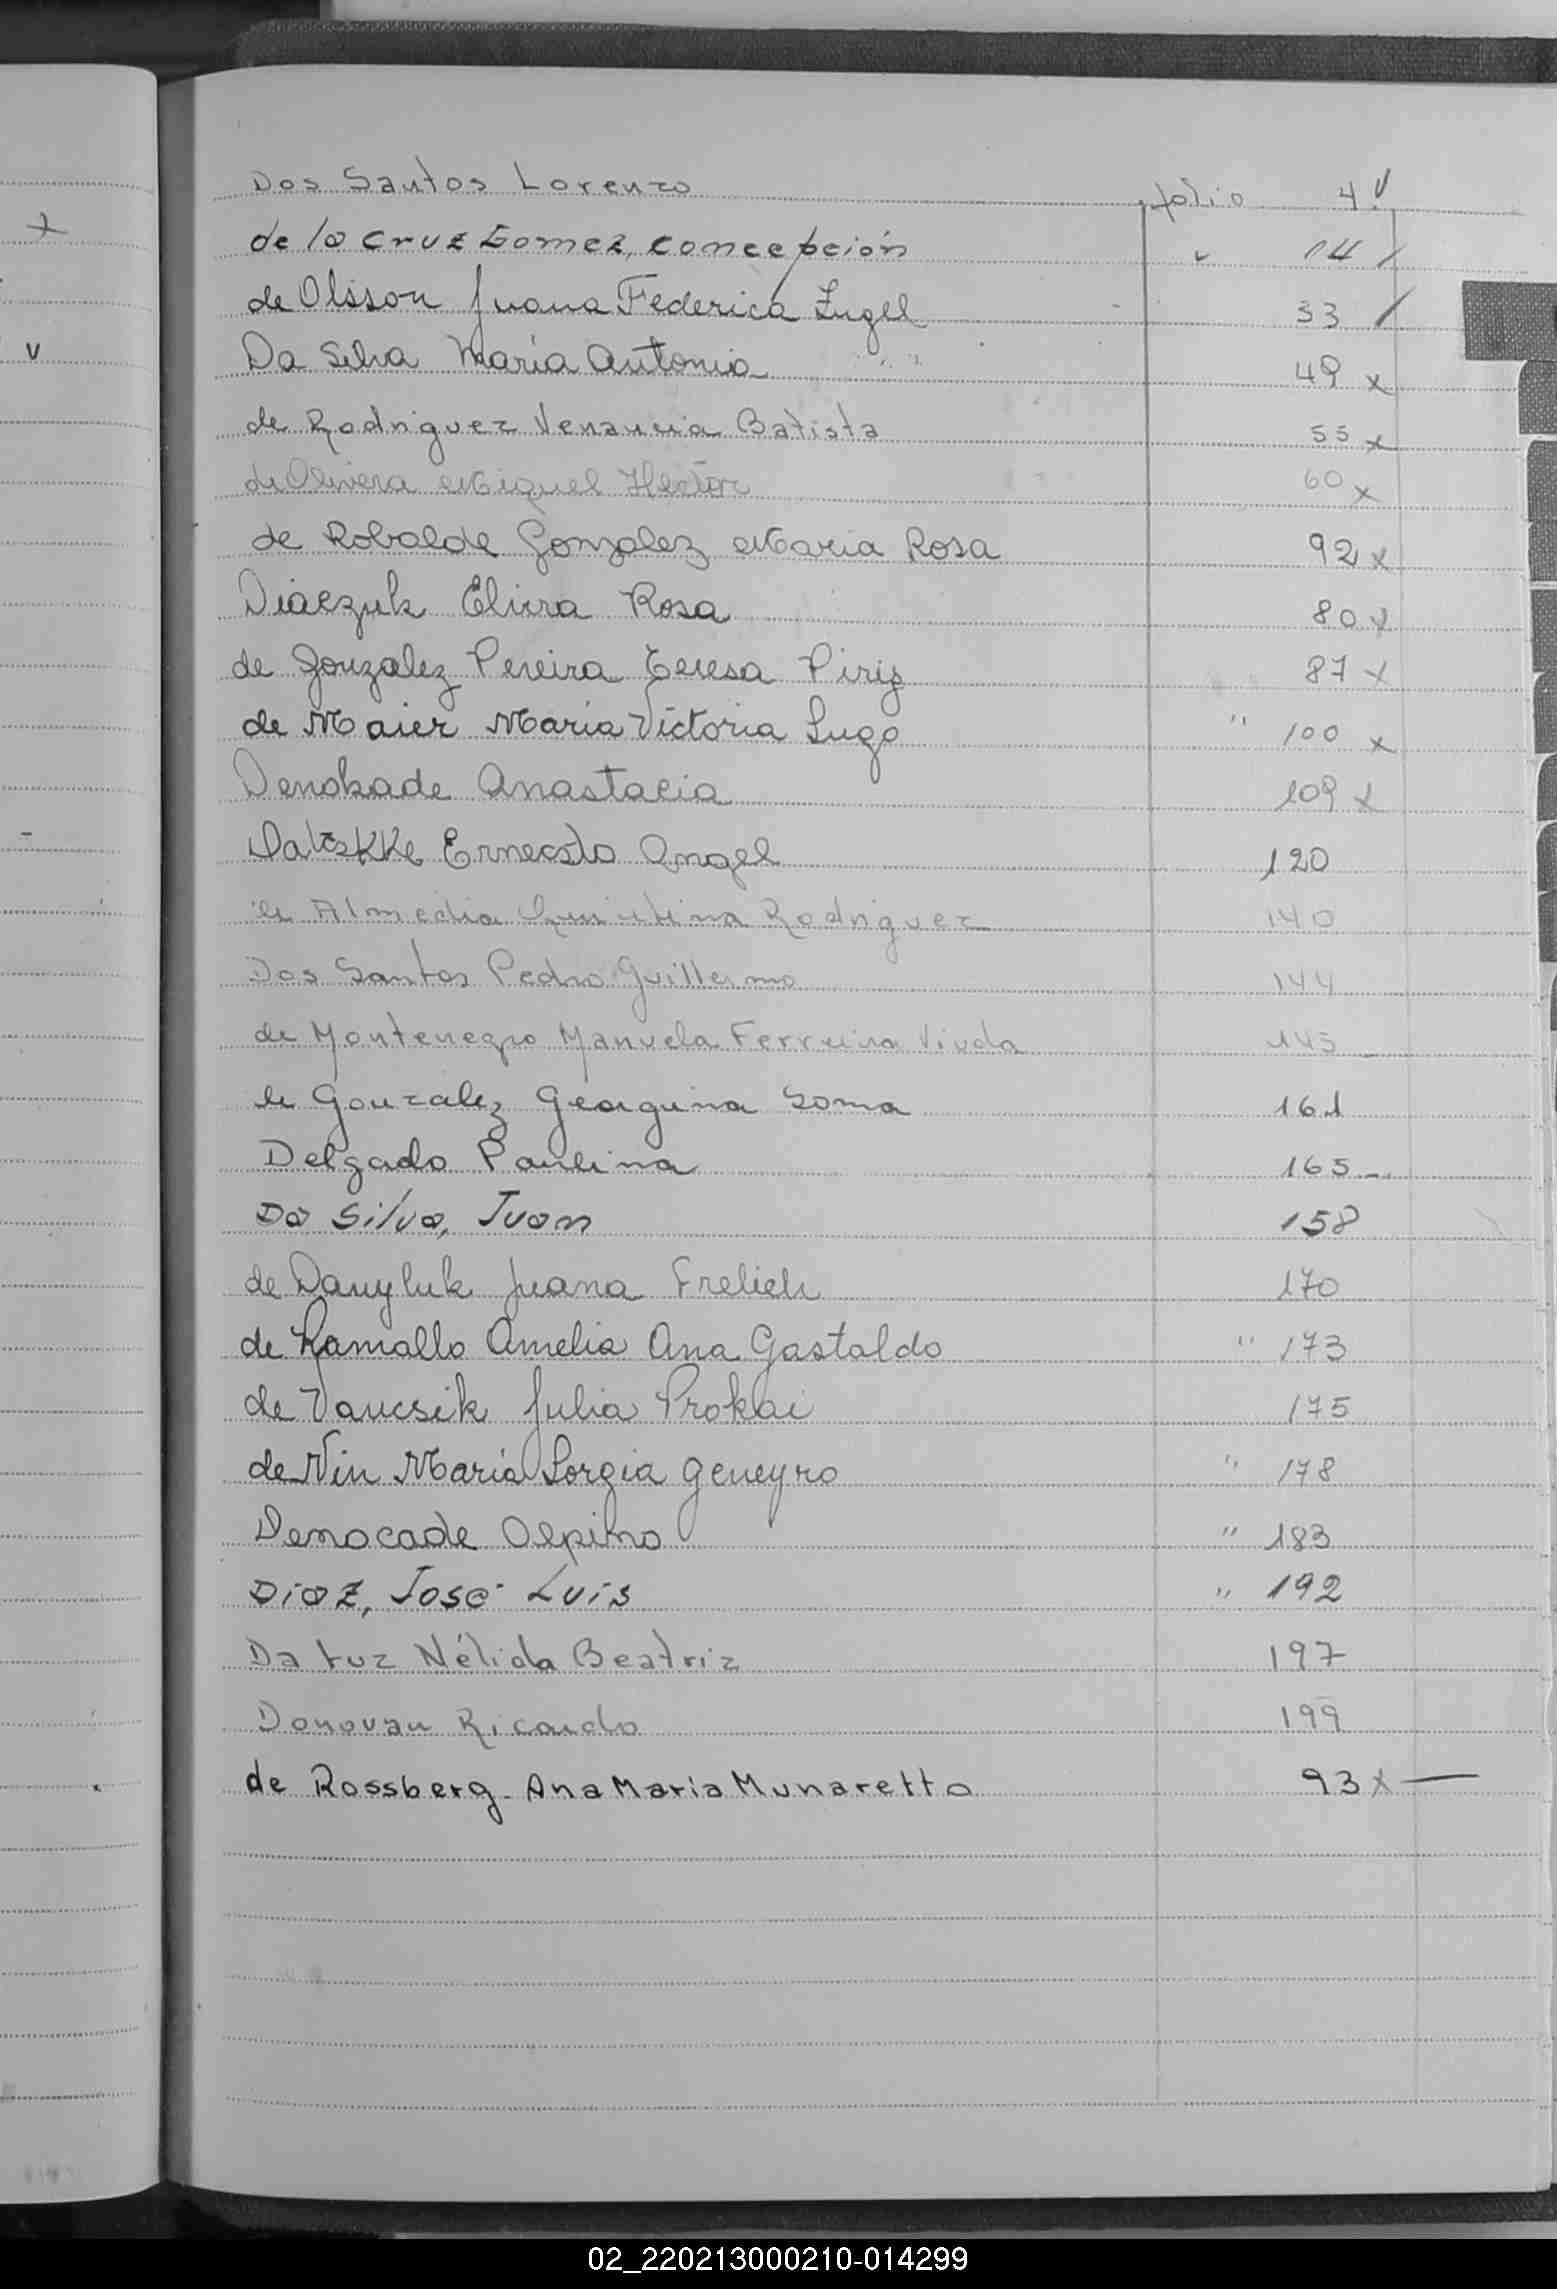 Dos Santos Lorenzo folio 4 v
de la Cruz Gomez, Concepción " 14 /
de Olsson Juana Federica Engel 33 /
Da Silva María Antonia 49 x
de Rodriguez Venancia Batista 55 x
de Olivera Miguel Hector 60 x
de Robalde Gonzalez Maria Rosa 92 x
Diaczuk Elvira Rosa 80 x
de Gonzalez Pereira Teresa Piriz 87 x
de Maier María Victoria Lugo " 100 x
Denokade Anastacia 109 x
Ernecsto Angel 120
de Almedia Quintina Rodriguez 140
Dos Santos Pedro Guillermo 144
de Montenegro Manuela Ferreira Viuda 145
de Gonzalez Georguina Soma 161
Delgado Paulina 165
Da Silva, Juan 158
de Danyluk Juana Frelich 170
de Ramallo Amelia Ana Gastaldo " 173
de Vaucsik Julia Prokai 175
de Nin María Lorgia Geneyro " 178
Denocade Olepino " 183
Diaz, José Luis " 192
Da Luz Nélida Beatriz 197
Donovan Ricardo 199
de Rossberg Ana María Munaretto 93 x —
x
v
02_220213000210-014299